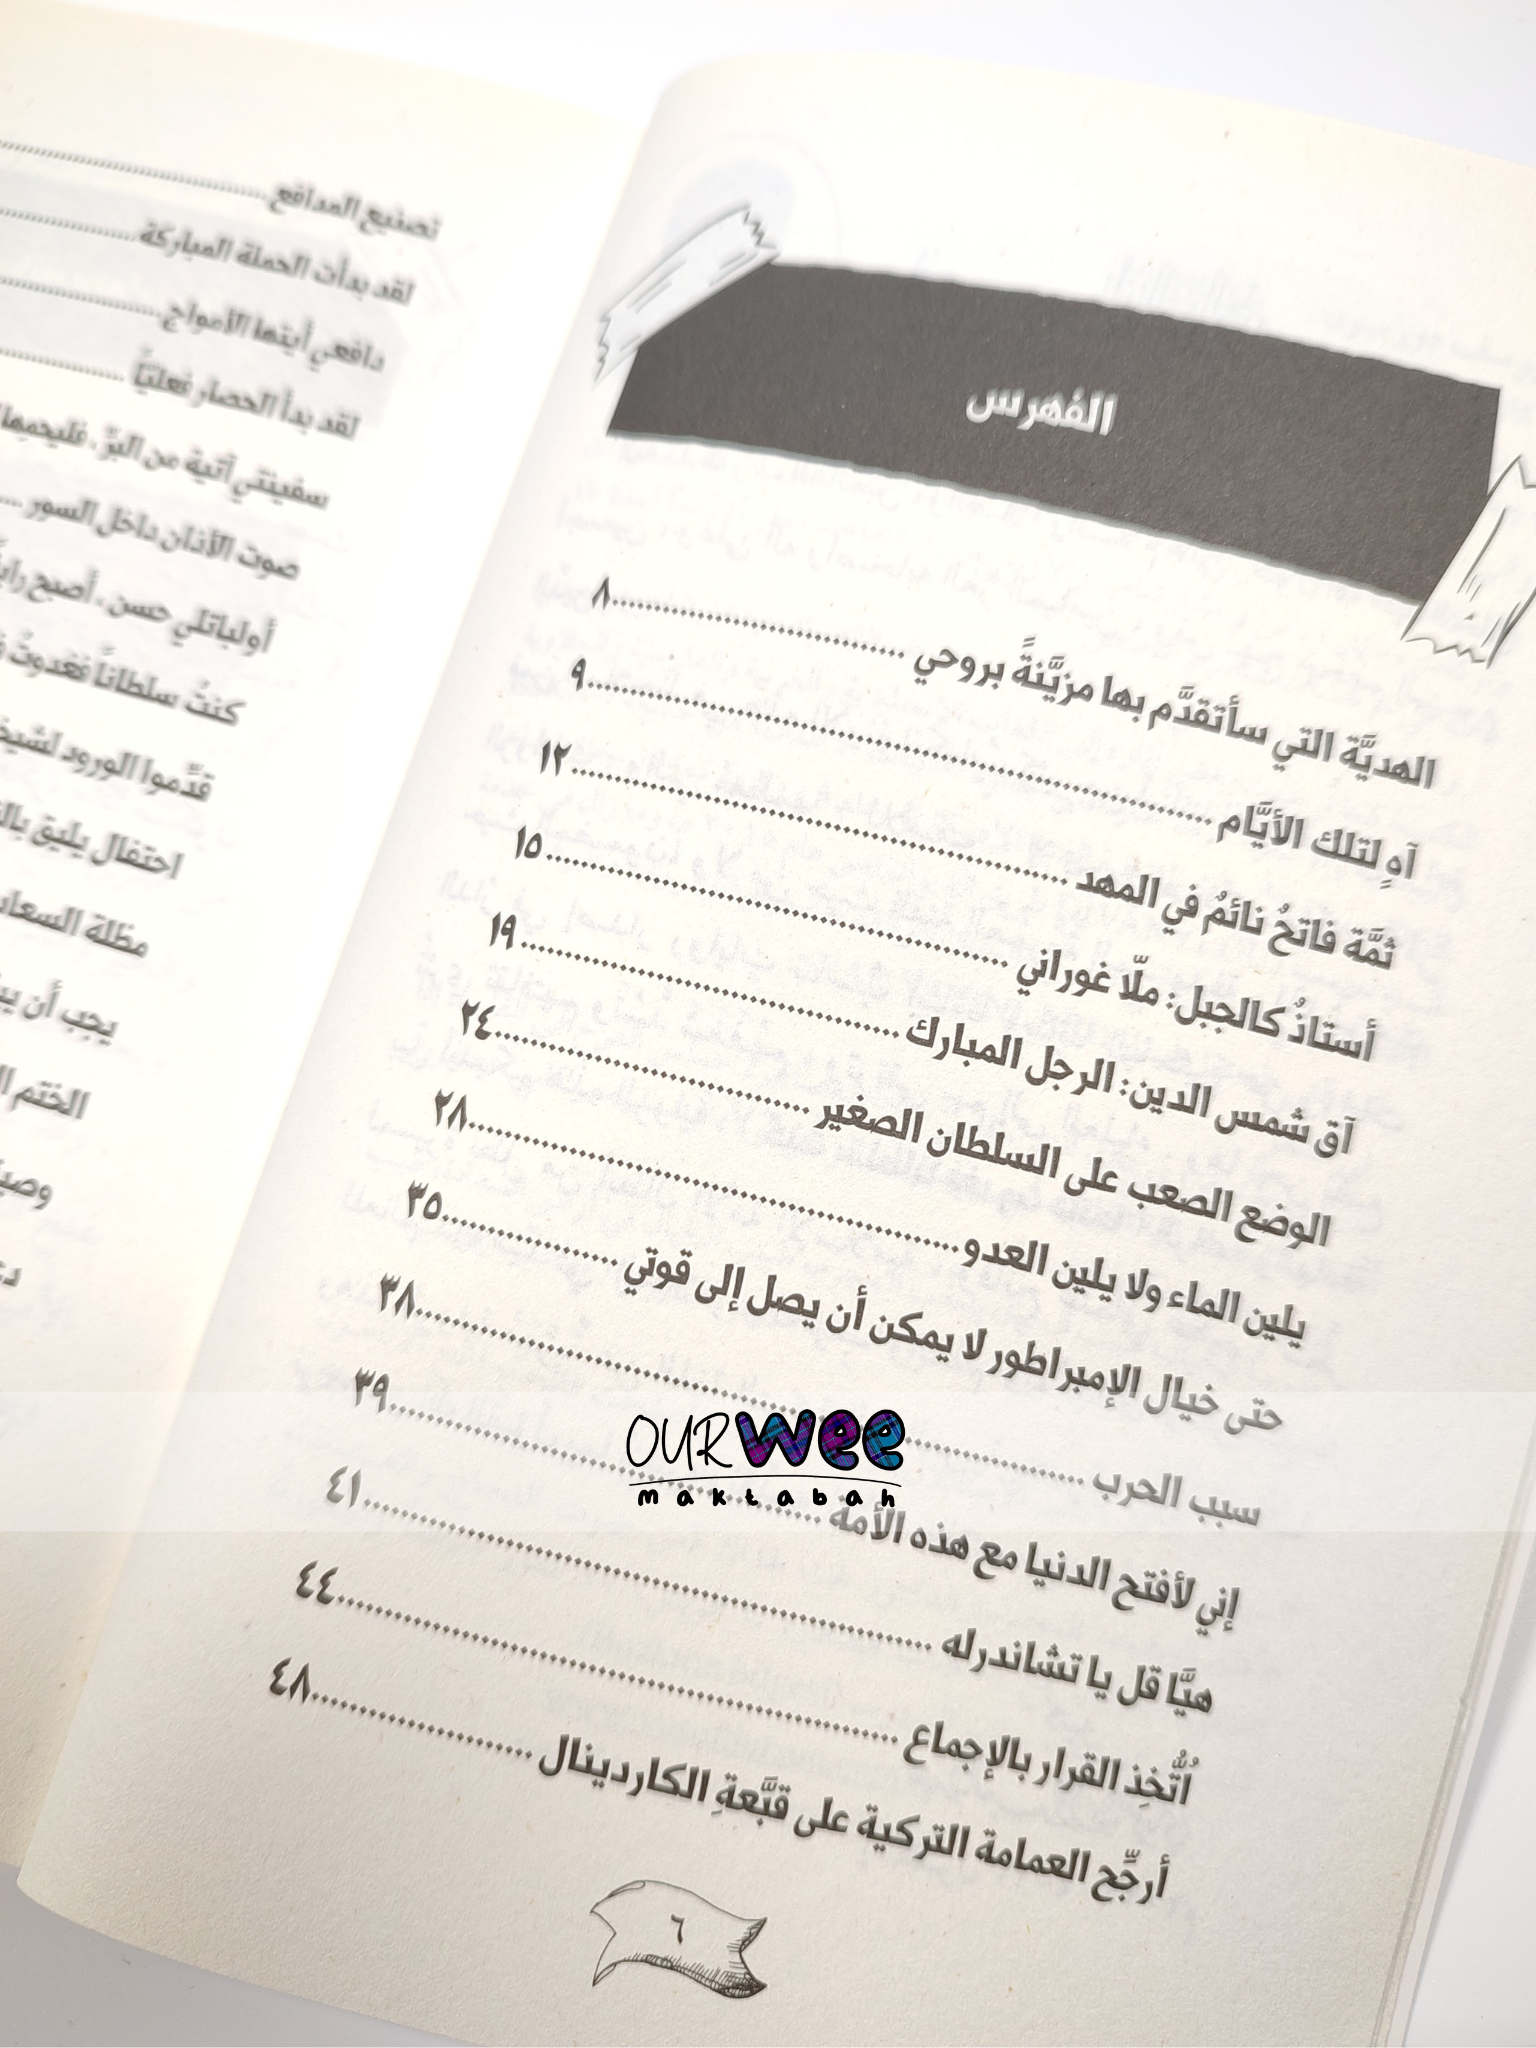 الفهرس
الهديَّة التي سأتقدَّم بها مزيَّنةً بروحي ........ ٨
آهٍ لتلك الأيَّام ........ ٩
ثمَّة فاتحُ نائمُ في المهد ........ ١٢
أستاذُ كالجبل: ملّا غوراني ........ ١٥
آق شمس الدين: الرجل المبارك ........ ١٩
الوضع الصعب على السلطان الصغير ........ ٢٤
يلين الماء ولا يلين العدو ........ ٢٨
حتى خيال الإمبراطور لا يمكن أن يصل إلى قوتي ........ ٣٥
سبب الحرب ........ ٣٨
إني لأفتح الدنيا مع هذه الأمة ........ ٣٩
هيَّا قل يا تشاندرله ........ ٤١
اُتُّخِذ القرار بالإجماع ........ ٤٤
أرجِّح العمامة التركية على قبَّعةِ الكاردينال ........ ٤٨
٦
تصنيع المدافع ........
لقد بدأت الحملة المباركة ........
دافعي أيتها الأمواج ........
لقد بدأ الحصار فعليّاً ........
سفينتي آتية من البرِّ، فليحمها
صوت الأذان داخل السور ....
أولباتلي حسن، أصبح
كنتُ سلطاناً فغدوتُ
قدِّموا الورود
احتفال يليق
مظلة
يجب أن
الختم
OUR wee
maktabah